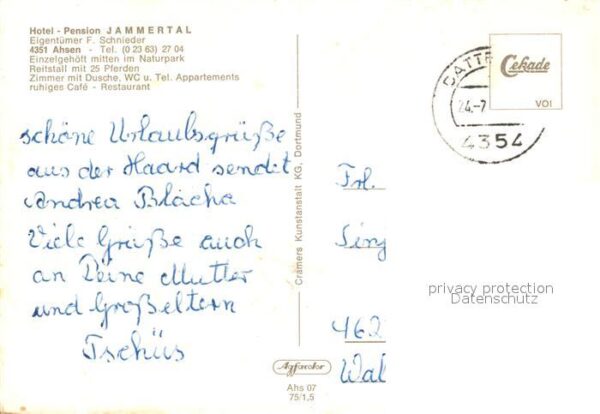 Hotel - Pension JAMMERTAL
Eigentümer F. Schnieder
4351 Ahsen - Tel. (0 23 63) 27 04
Einzelgehöft mitten im Naturpark
Reitstall mit 25 Pferden
Zimmer mit Dusche, WC u. Tel. Appartements
ruhiges Café - Restaurant
schöne Urlaubsgrüße
aus der Haard sendet
Andrea Blacha
Viele Grüße auch
an Deine Mutter
und Großeltern
Tschüs
Cramers Kunstanstalt KG, Dortmund
Agfacolor
Ahs 07
75/1,5
DATTE
24.-7
4354
Cekade
VOI
Frl.
462
Wal
privacy protection
Datenschutz